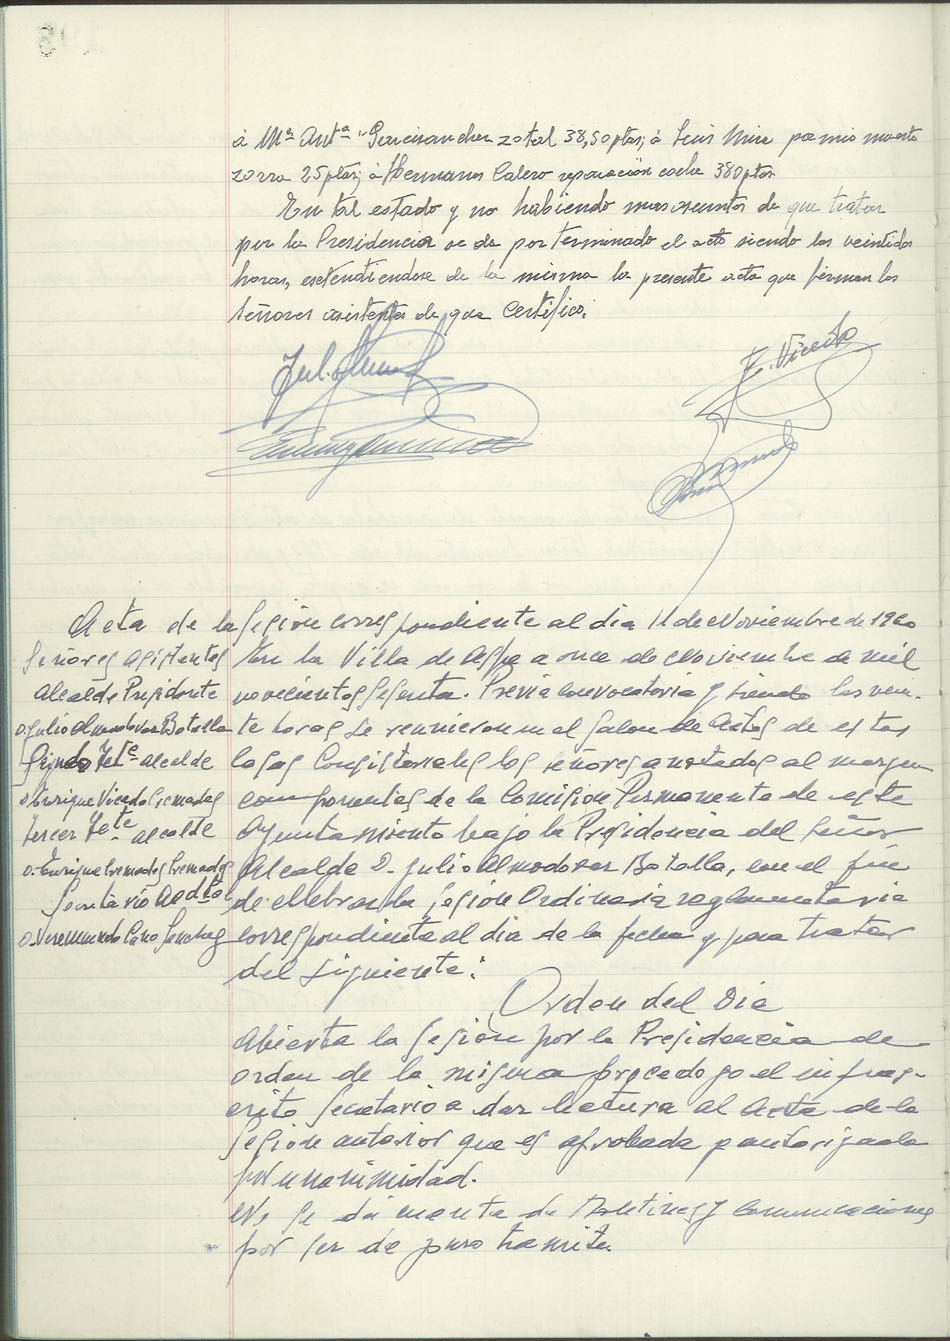 á Mª Antª Garcisanchez zotal 38,50 ptas; á Luis Mira premio muerte
zorra 25 ptas; á Hermanos Calero reparación coche 380 ptas
En tal estado y no habiendo mas asuntos de que tratar
por la Presidencia se da por terminado el acto siendo las veintidos
horas, extendiendose de la misma la presente acta que firman los
señores asistentes de que Certifico.
E. Vicedo
Acta de la Sesión correspondiente al dia 11 de Noviembre de 1960
Señores Asistentes
Alcalde Presidente
D. Julio Almodovar Botella
Segundo Tete alcalde
D. Enrique Vicedo Cremades
Tercer Tete alcalde
D. Enrique Cremades Cremades
Secretario Acctal
D. Veremundo Cano Sanchez
En la Villa de Aspe a once de Noviembre de mil
novecientos sesenta. Previa convocatoria y siendo las vein-
te horas se reunieron en el Salon de Actos de estas
Casas Consistoriales los señores anotados al margen
componentes de la Comision Permanente de este
Ayuntamiento bajo la Presidencia del Señor
Alcalde D. Julio Almodovar Botella, con el fin
de celebrar la Sesion Ordinaria reglamentaria
correspondiente al dia de la fecha y para tratar
del siguiente:
Orden del Dia
Abierta la Sesion por la Presidencia de
orden de la misma procedo yo el infras-
crito Secretario a dar lectura al Acta de la
Sesion anterior que es aprobada y autorizada
por unanimidad.
No se da cuenta de Boletines y Comunicaciones
por ser de puro tramite.